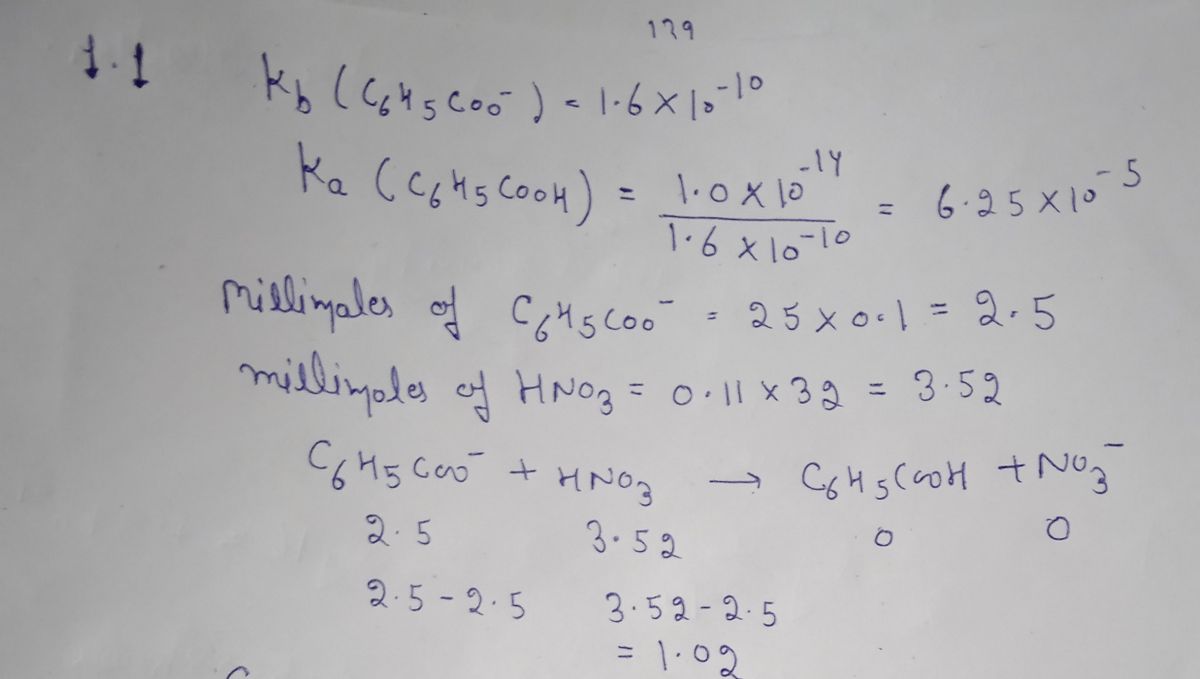 139
1.1 Kb (C6H5COO⁻) = 1.6 × 10⁻¹⁰
Ka (C6H5COOH) = 1.0 × 10⁻¹⁴ / 1.6 × 10⁻¹⁰ = 6.25 × 10⁻⁵
Millimoles of C6H5COO⁻ = 25 × 0.1 = 2.5
millimoles of HNO3 = 0.11 × 32 = 3.52
C6H5COO⁻ + HNO3 → C6H5COOH + NO3⁻
2.5 3.52 0 0
2.5 - 2.5 3.52 - 2.5
= 1.02